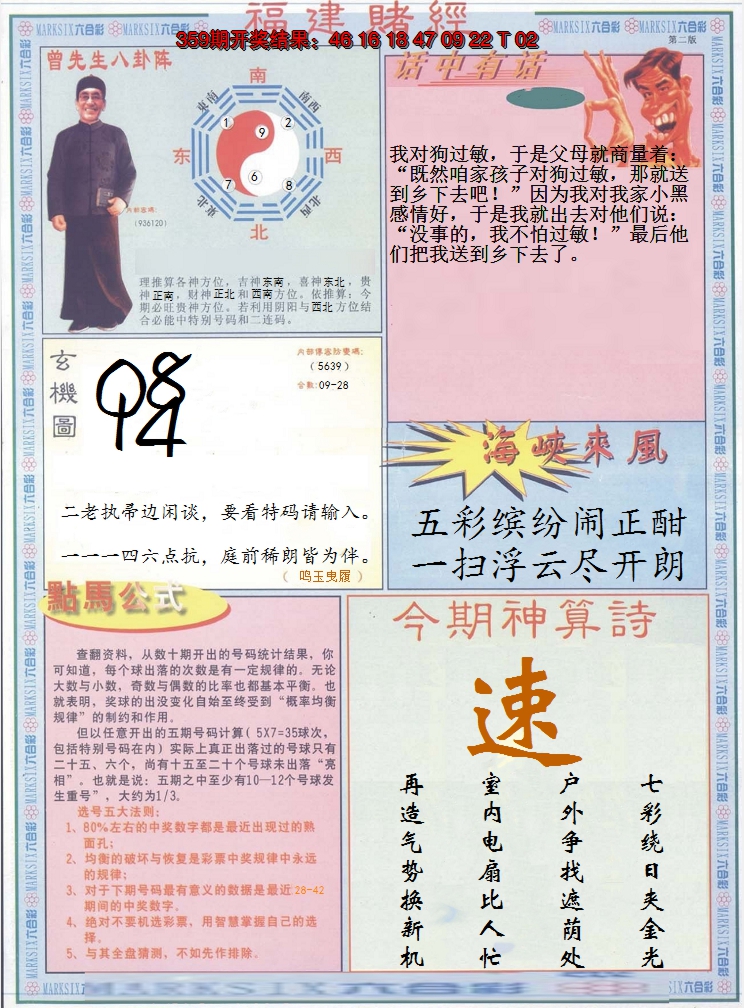 福建賭經
359期开奖结果：46 16 18 47 09 22 T 02
第二版
曾先生八卦阵
南
东南
南西
1
9
2
东
西
7
6
8
東北
北西
北
内部密碼:
（936120）
理推算各神方位，吉神东南，喜神东北，贵
神正南，财神正北和西南方位。依推算：今
期必旺贵神方位。若利用阴阳与西北方位结
合必能中特别号码和二连码。
话中有话
我对狗过敏，于是父母就商量着：
“既然咱家孩子对狗过敏，那就送
到乡下去吧！”因为我对我家小黑
感情好，于是我就出去对他们说：
“没事的，我不怕过敏！”最后他
们把我送到乡下去了。
玄機圖
内部傳密防變碼:
（5639）
合數:09-28
二老执帚边闲谈，要看特码请输入。
一一一四六点抗，庭前稀朗皆为伴。
（ 鸣玉曳履 ）
海峽來風
五彩缤纷闹正酣
一扫浮云尽开朗
點馬公式
查翻资料，从数十期开出的号码统计结果，你
可知道，每个球出落的次数是有一定规律的。无论
大数与小数，奇数与偶数的比率也都基本平衡。也
就表明，奖球的出没变化自始至终受到“概率均衡
规律”的制约和作用。
但以任意开出的五期号码计算( 5X7=35球次，
包括特别号码在内) 实际上真正出落过的号球只有
二十五、六个，尚有十五至二十个号球未出落“亮
相”。也就是说：五期之中至少有10—12个号球发
生重号”，大约为1/3。
选号五大法则:
1、80%左右的中奖数字都是最近出现过的熟
面孔；
2、均衡的破坏与恢复是彩票中奖规律中永远
的规律；
3、对于下期号码最有意义的数据是最近28-42
期间的中奖数字。
4、绝对不要机选彩票，用智慧掌握自己的选
择。
5、与其全盘猜测，不如先作排除。
今期神算詩
速
七彩绕日夹金光
户外争找遮荫处
室内电扇比人忙
再造气势换新机
MARKSIX六合彩